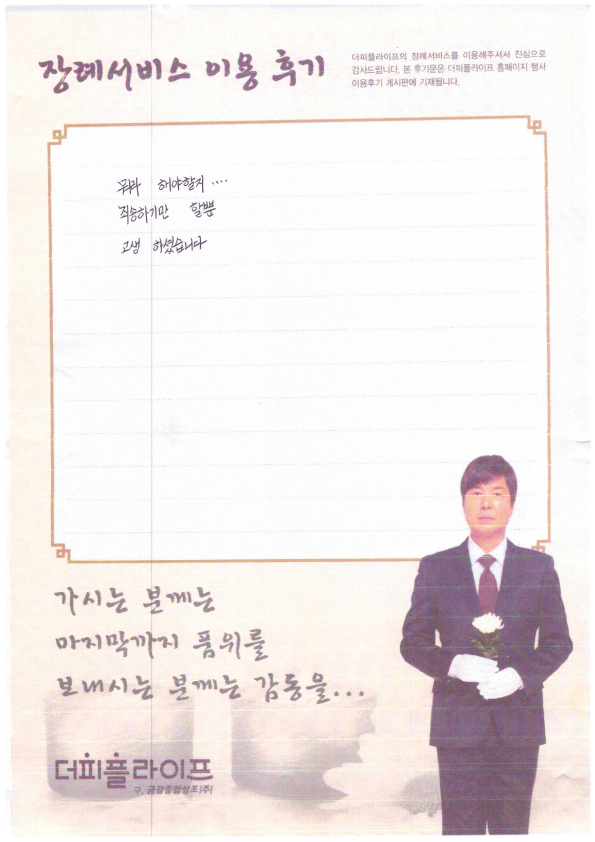 장례서비스 이용 후기
더피플라이프의 장례서비스를 이용해주셔서 진심으로
감사드립니다. 본 후기문은 더피플라이프 홈페이지 행사
이용후기 게시판에 기재됩니다.
뭐라 해야할지 ....
죄송하기만 할뿐
고생 하셨습니다
가시는 분께는
마지막까지 품위를
보내시는 분께는 감동을...
더피플라이프
구. 금강종합상조(주)